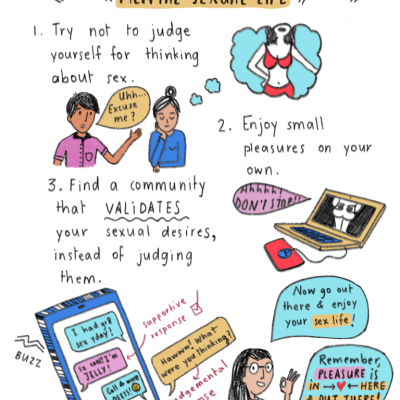 MENTAL SEXUAL LIFE
1. Try not to judge
yourself for thinking
about sex.
Uhh...
Excuse
me?
2. Enjoy small
pleasures on your
own.
Ahhhh!
DON'T STOP!!
3. Find a community
that VALIDATES
your sexual desires,
instead of judging
them.
BUZZ
I had gr8
sex yday!
So cool! I'm
JELLY!
Call & more
DEETS!
supportive
response
Hawww! What
were you thinking?
judgemental
Now go out
there & enjoy
your sex life!
Remember,
PLEASURE is
IN → ← HERE
& OUT THERE!